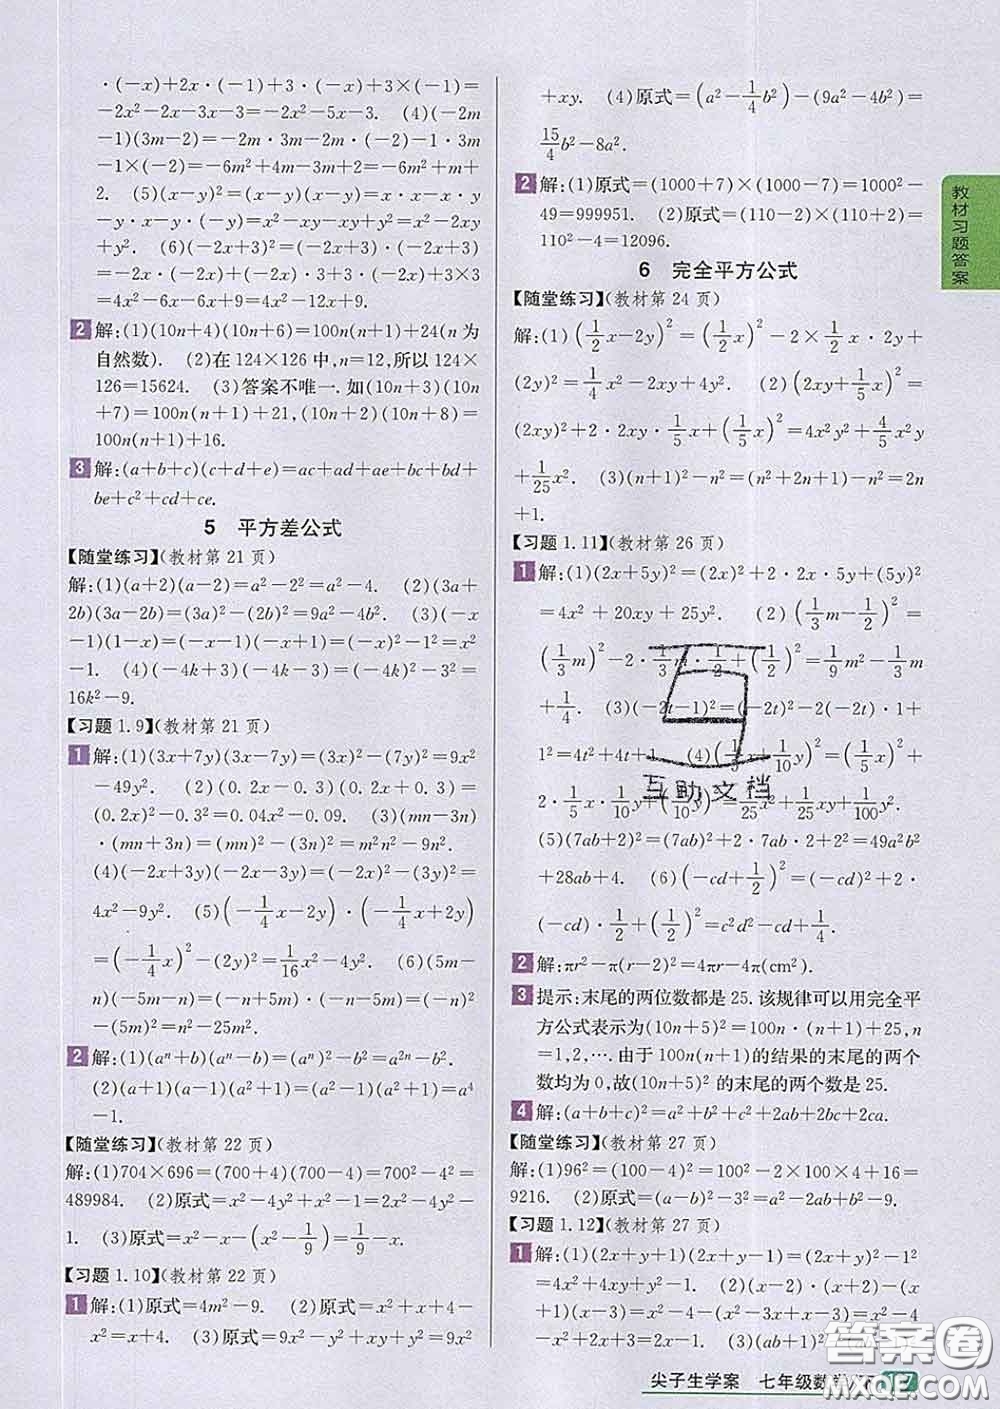 ·(-x)+2x·(-1)+3·(-x)+3×(-1)=
-2x²-2x-3x-3=-2x²-5x-3. (4)(-2m
-1)(3m-2)=-2m·3m-2m·(-2)-1·3m
-1×(-2)=-6m²+4m-3m+2=-6m²+m+
2. (5)(x-y)²=(x-y)(x-y)=x·x-x·y
-y·x-y·(-y)=x²-xy-xy+y²=x²-2xy
+y². (6)(-2x+3)²=(-2x+3)(-2x+3)
=-2x·(-2x)-2x·3+3·(-2x)+3×3
=4x²-6x-6x+9=4x²-12x+9.
2 解:(1)(10n+4)(10n+6)=100n(n+1)+24(n 为
自然数). (2)在 124×126 中,n=12,所以 124×
126=15624. (3)答案不唯一.如(10n+3)(10n
+7)=100n(n+1)+21,(10n+2)(10n+8)=
100n(n+1)+16.
3 解:(a+b+c)(c+d+e)=ac+ad+ae+bc+bd+
be+c²+cd+ce.
5 平方差公式
【随堂练习】(教材第 21 页)
解:(1)(a+2)(a-2)=a²-2²=a²-4. (2)(3a+
2b)(3a-2b)=(3a)²-(2b)²=9a²-4b². (3)(-x
-1)(1-x)=(-x-1)(-x+1)=(-x)²-1²=x²
-1. (4)(-4k+3)(-4k-3)=(-4k)²-3²=
16k²-9.
【习题 1.9】(教材第 21 页)
1 解:(1)(3x+7y)(3x-7y)=(3x)²-(7y)²=9x²
-49y². (2)(0.2x-0.3)(0.2x+0.3)=
(0.2x)²-0.3²=0.04x²-0.09. (3)(mn-3n)
·(mn+3n)=(mn)²-(3n)²=m²n²-9n².
(4)(-2x+3y)(-2x-3y)=(-2x)²-(3y)²=
4x²-9y². (5)(-1/4x-2y)·(-1/4x+2y)
=(-1/4x)²-(2y)²=1/16x²-4y². (6)(5m-
n)(-5m-n)=(-n+5m)(-n-5m)=(-n)²
-(5m)²=n²-25m².
2 解:(1)(aⁿ+b)(aⁿ-b)=(aⁿ)²-b²=a²ⁿ-b².
(2)(a+1)(a-1)(a²+1)=(a²-1)(a²+1)=a⁴
-1.
【随堂练习】(教材第 22 页)
解:(1)704×696=(700+4)(700-4)=700²-4²=
489984. (2)原式=x²-4y²+x²-1=2x²-4y²-
1. (3)原式=x²-x-(x²-1/9)=1/9-x.
【习题 1.10】(教材第 22 页)
1 解:(1)原式=4m²-9. (2)原式=x²+x+4-
x²=x+4. (3)原式=9x²-y²+xy+y²=9x²
+xy. (4)原式=(a²-1/4b²)-(9a²-4b²)=
15/4b²-8a².
2 解:(1)原式=(1000+7)×(1000-7)=1000²-
49=999951. (2)原式=(110-2)×(110+2)=
110²-4=12096.
6 完全平方公式
【随堂练习】(教材第 24 页)
解:(1)(1/2x-2y)²=(1/2x)²-2×1/2x·2y+
(2y)²=1/4x²-2xy+4y². (2)(2xy+1/5x)²=
(2xy)²+2·2xy·1/5x+(1/5x)²=4x²y²+4/5x²y
+1/25x². (3)(n+1)²-n²=(n²+2n+1)-n²=2n
+1.
【习题 1.11】(教材第 26 页)
1 解:(1)(2x+5y)²=(2x)²+2·2x·5y+(5y)²
=4x²+20xy+25y². (2)(1/3m-1/2)²=
(1/3m)²-2·1/3m·1/2+(1/2)²=1/9m²-1/3m
+1/4. (3)(-2t-1)²=(-2t)²-2(-2t)·1+
1²=4t²+4t+1. (4)(1/5x+1/10y)²=(1/5x)²
+2·1/5x·1/10y+(1/10y)²=1/25x²+1/25xy+1/100y².
(5)(7ab+2)²=(7ab)²+2·7ab·2+2²=49a²b²
+28ab+4. (6)(-cd+1/2)²=(-cd)²+2·
(-cd)·1/2+(1/2)²=c²d²-cd+1/4.
2 解:πr²-π(r-2)²=4πr-4π(cm²).
3 提示:末尾的两位数都是 25.该规律可以用完全平
方公式表示为(10n+5)²=100n·(n+1)+25,n
=1,2,….由于 100n(n+1)的结果的末尾的两个
数均为 0,故(10n+5)² 的末尾的两个数是 25.
4 解:(a+b+c)²=a²+b²+c²+2ab+2bc+2ca.
【随堂练习】(教材第 27 页)
解:(1)96²=(100-4)²=100²-2×100×4+16=
9216. (2)原式=(ab)²-3²=a²-2ab+b²-9.
【习题 1.12】(教材第 27 页)
1 解:(1)(2x+y+1)(2x+y-1)=(2x+y)²-1²
=4x²+4xy+y²-1. (2)(x-2)(x+2)-(x
+1)(x-3)=x²-4-(x²-2x-3)=x²-4
-x²+2x+3=2x-1. (3)(ab+1)²
教材习题答案
互助文档
尖子生学案 七年级数学
17
答案圈
MXQE.COM